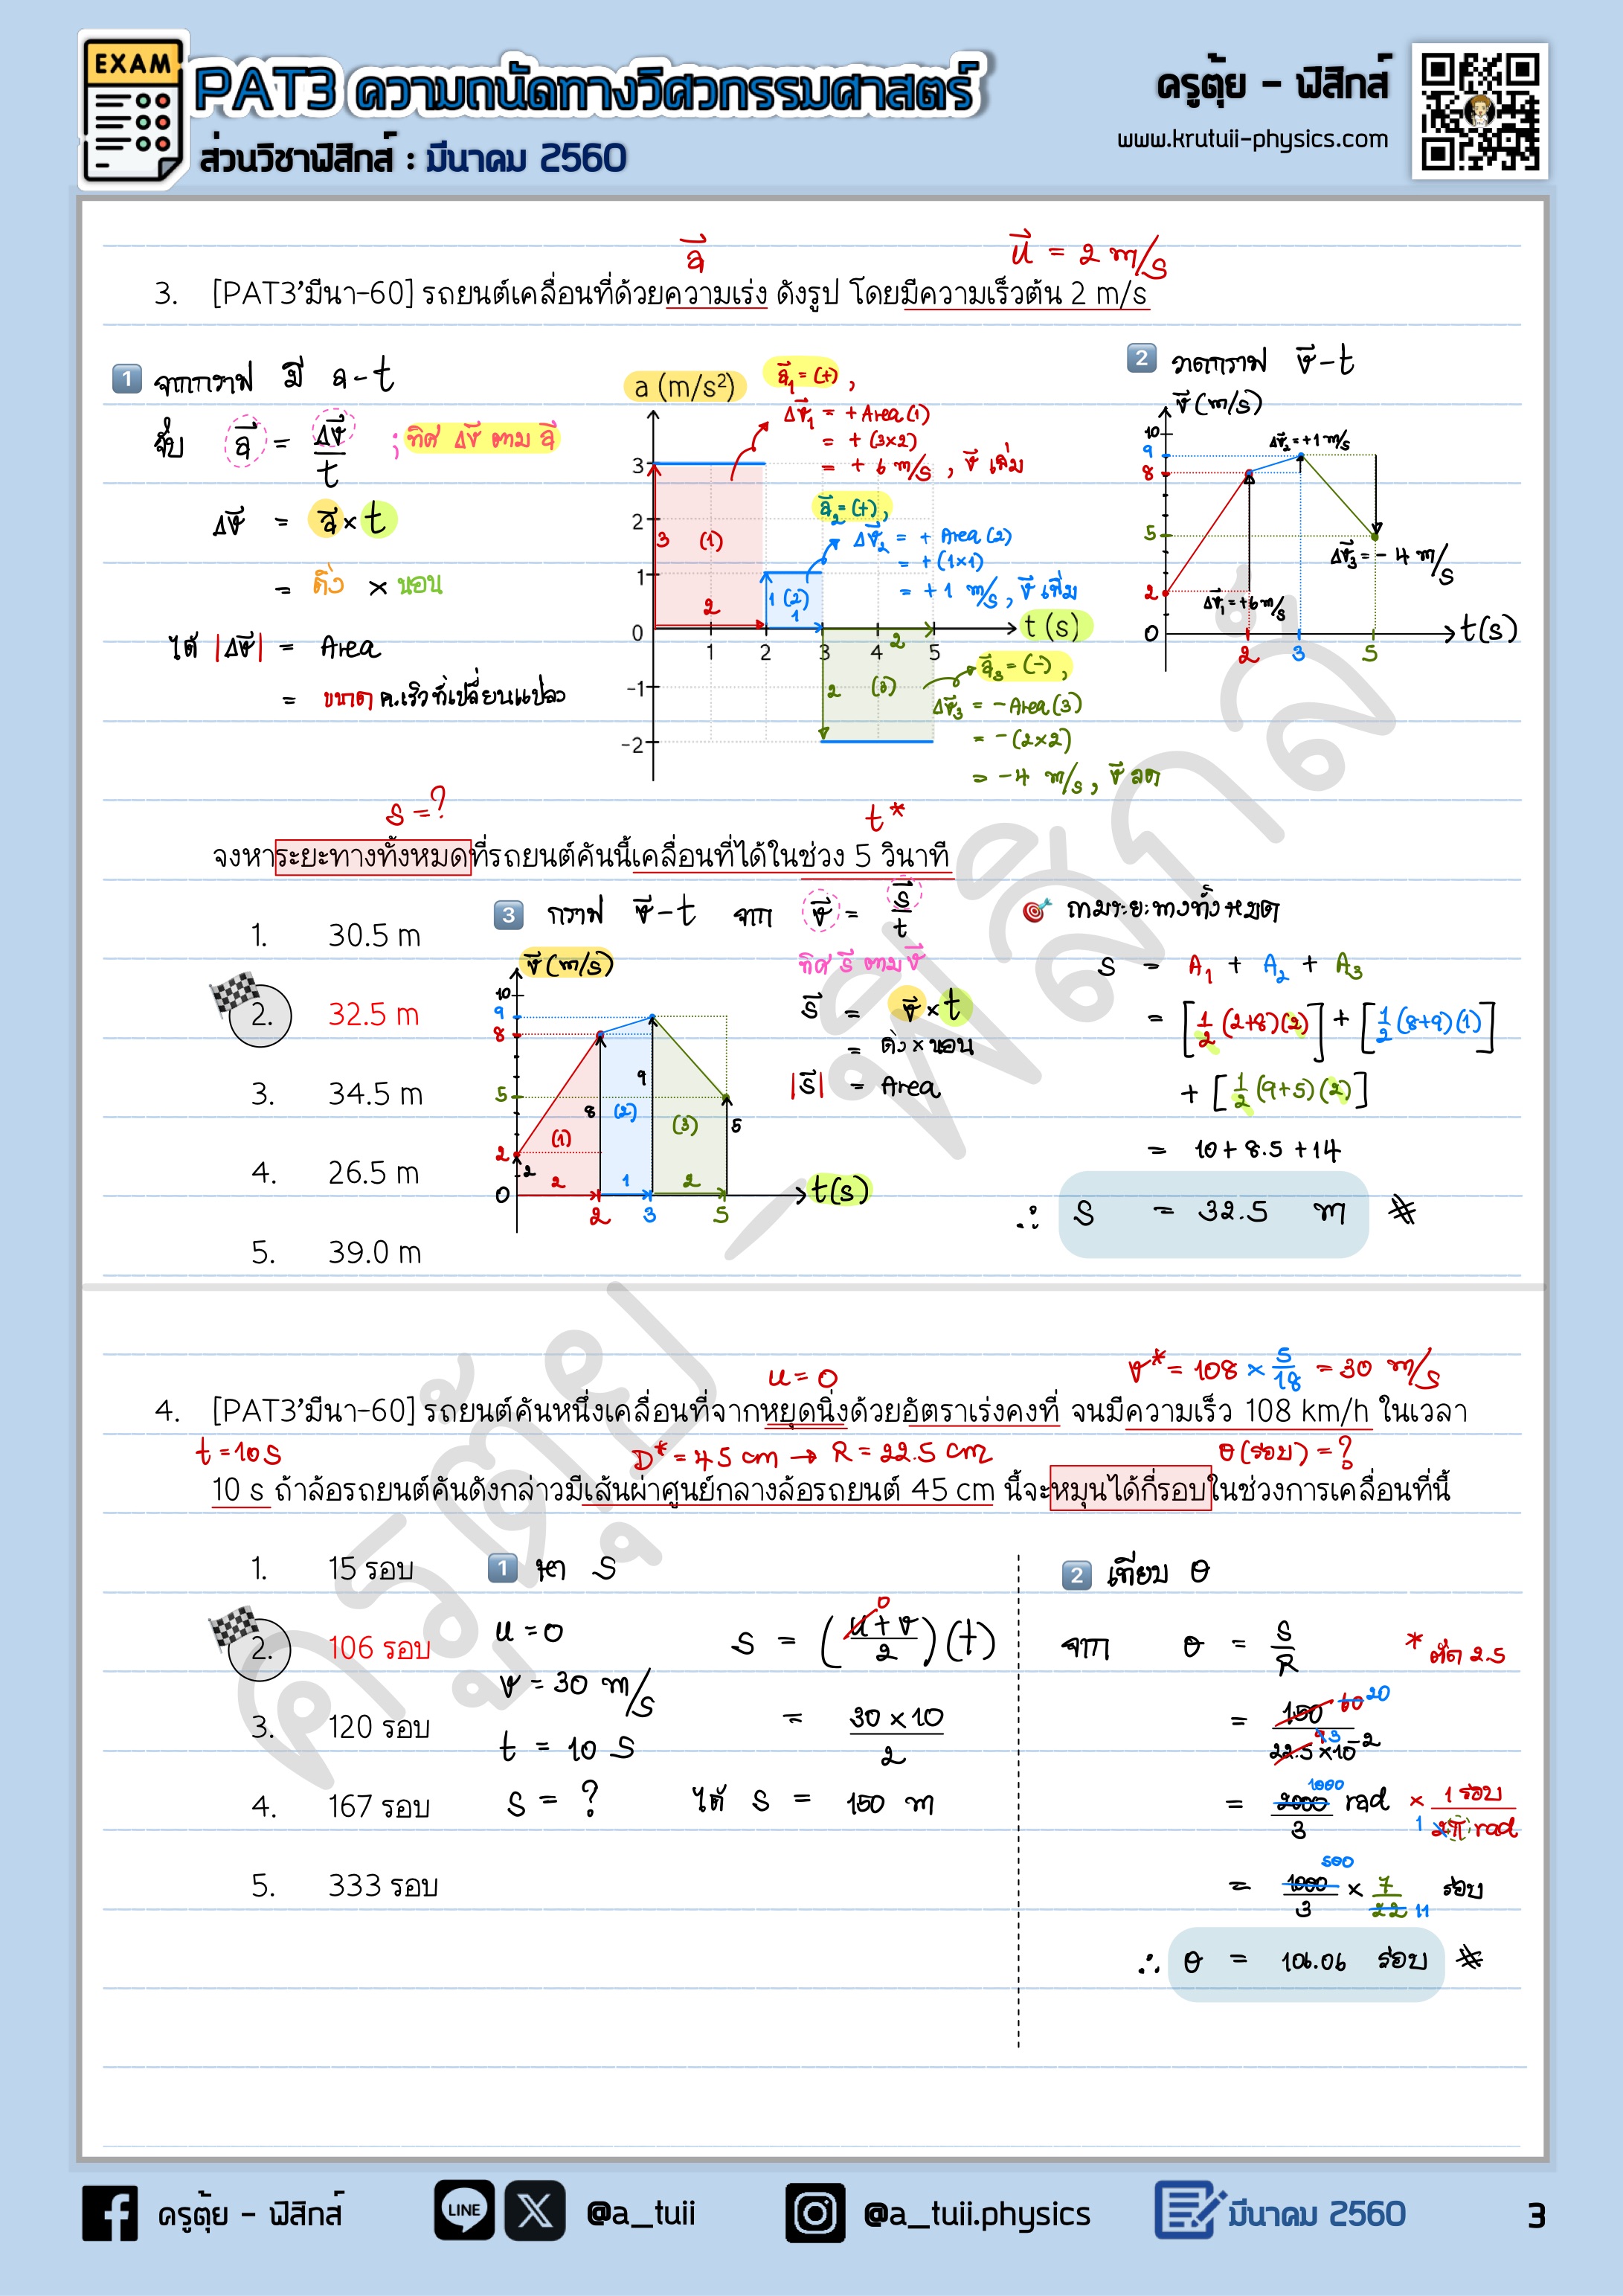 EXAM
PAT3 ความถนัดทางวิศวกรรมศาสตร์
ส่วนวิชาฟิสิกส์ : มีนาคม 2560
ครูตุ้ย - ฟิสิกส์
www.krutuii-physics.com
a⃗
u⃗ = 2 m/s
3. [PAT3'มีนา-60] รถยนต์เคลื่อนที่ด้วยความเร่ง ดังรูป โดยมีความเร็วต้น 2 m/s
1 จากกราฟ มี a-t
จับ a⃗ = Δv⃗/t ; ทิศ Δv⃗ ตาม a⃗
Δv⃗ = a⃗ × t
= ดิ่ง × นอน
ได้ |Δv⃗| = Area
= ขนาด ค.เร็วที่เปลี่ยนแปลง
a (m/s²)
a⃗₁ = (+),
Δv⃗₁ = + Area (1)
= + (3×2)
= + 6 m/s, v⃗ เพิ่ม
a⃗₂ = (+),
Δv⃗₂ = + Area (2)
= + (1×1)
= +1 m/s, v⃗ เพิ่ม
3
2
1
0
-1
-2
3 (1)
2
1 (2)
1
t (s)
1 2 3 4 5
2
2 (3)
a⃗₃ = (-),
Δv⃗₃ = - Area (3)
= - (2×2)
= -4 m/s, v⃗ ลด
2 วาดกราฟ v⃗-t
v⃗ (m/s)
10
9
8
5
2
0
Δv⃗₂ = +1 m/s
Δv⃗₃ = - 4 m/s
Δv⃗₁ = +6 m/s
t(s)
2 3 5
s = ?
t*
จงหาระยะทางทั้งหมดที่รถยนต์คันนี้เคลื่อนที่ได้ในช่วง 5 วินาที
1. 30.5 m
2. 32.5 m
3. 34.5 m
4. 26.5 m
5. 39.0 m
3 กราฟ v⃗-t จาก v⃗ = s⃗/t
ทิศ s⃗ ตาม v⃗
s⃗ = v⃗ × t
= ดิ่ง × นอน
|s⃗| = Area
v⃗ (m/s)
10
9
8
5
2
0
2 (1) 2
8 (2) 1
9 (3) 2
5
t(s)
2 3 5
ถามระยะทางทั้งหมด
S = A₁ + A₂ + A₃
= [½ (2+8)(2)] + [½ (8+9)(1)]
+ [½ (9+5)(2)]
= 10 + 8.5 + 14
∴ S = 32.5 m #
u = 0
v* = 108 × 5/18 = 30 m/s
4. [PAT3'มีนา-60] รถยนต์คันหนึ่งเคลื่อนที่จากหยุดนิ่งด้วยอัตราเร่งคงที่ จนมีความเร็ว 108 km/h ในเวลา
t = 10 s
D* = 45 cm → R = 22.5 cm
θ (รอบ) = ?
10 s ถ้าล้อรถยนต์คันดังกล่าวมีเส้นผ่าศูนย์กลางล้อรถยนต์ 45 cm นี้จะหมุนได้กี่รอบในช่วงการเคลื่อนที่นี้
1. 15 รอบ
2. 106 รอบ
3. 120 รอบ
4. 167 รอบ
5. 333 รอบ
1 หา S
u = 0
v = 30 m/s
t = 10 s
s = ?
s = (u + v / 2)(t)
0
= 30 × 10 / 2
ได้ s = 150 m
2 เทียบ θ
จาก θ = S/R
* ตัด 2.5
= 150 60 20 / 22.5 × 10⁻² 9 3
= 2000 1000 / 3 rad × 1 รอบ / 2π rad
1
= 1000 500 / 3 × 7 / 22 11 รอบ
∴ θ = 106.06 รอบ #
ครูตุ้ย - ฟิสิกส์
ครูตุ้ย - ฟิสิกส์
LINE
@a_tuii
@a_tuii.physics
มีนาคม 2560
3